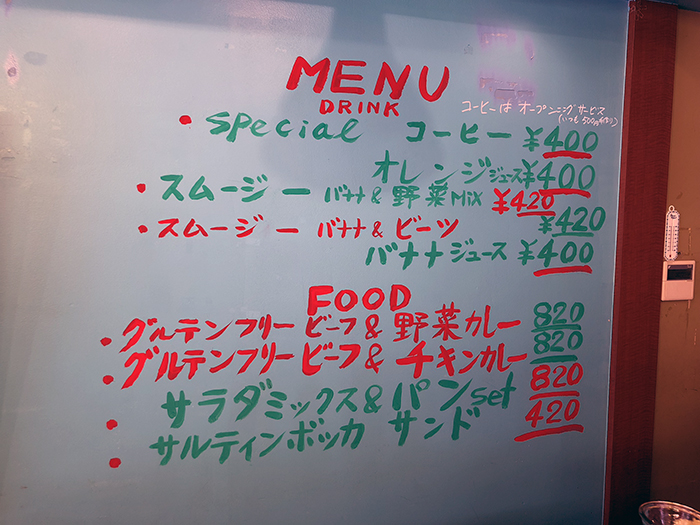 MENU
DRINK
コーヒーは オープンニングサービス
・Special コーヒー ¥400
オレンジジュース ¥400
・スムージー ー バナナ & 野菜 Mix ¥420
・スムージー ー バナナ & ビーツ ¥420
バナナジュース ¥400
FOOD
・グルテンフリー ビーフ & 野菜カレー 820
・グルテンフリー ビーフ & チキンカレー 820
・サラダミックス & パン set 820
・サルティンボッカ サンド 420